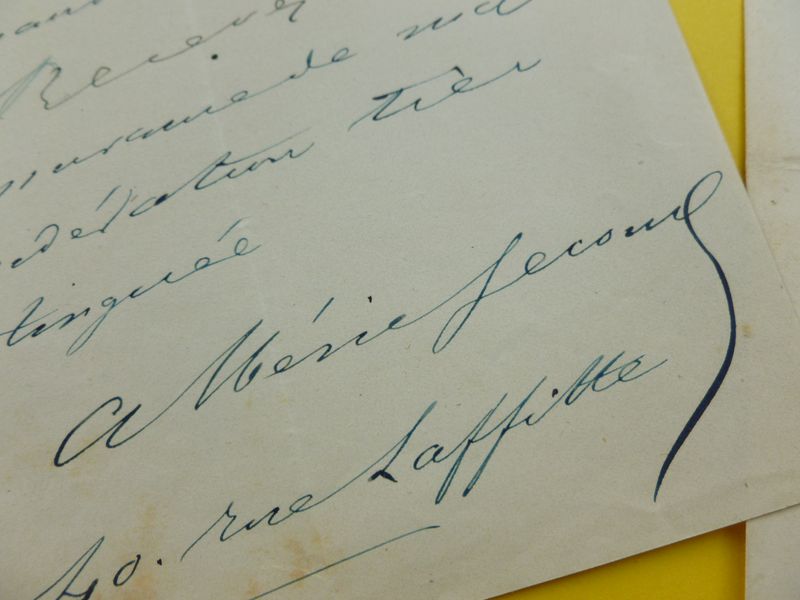 Recevez
surance de ma
sidération très
tinguée
Albéric Second
40. rue Laffitte